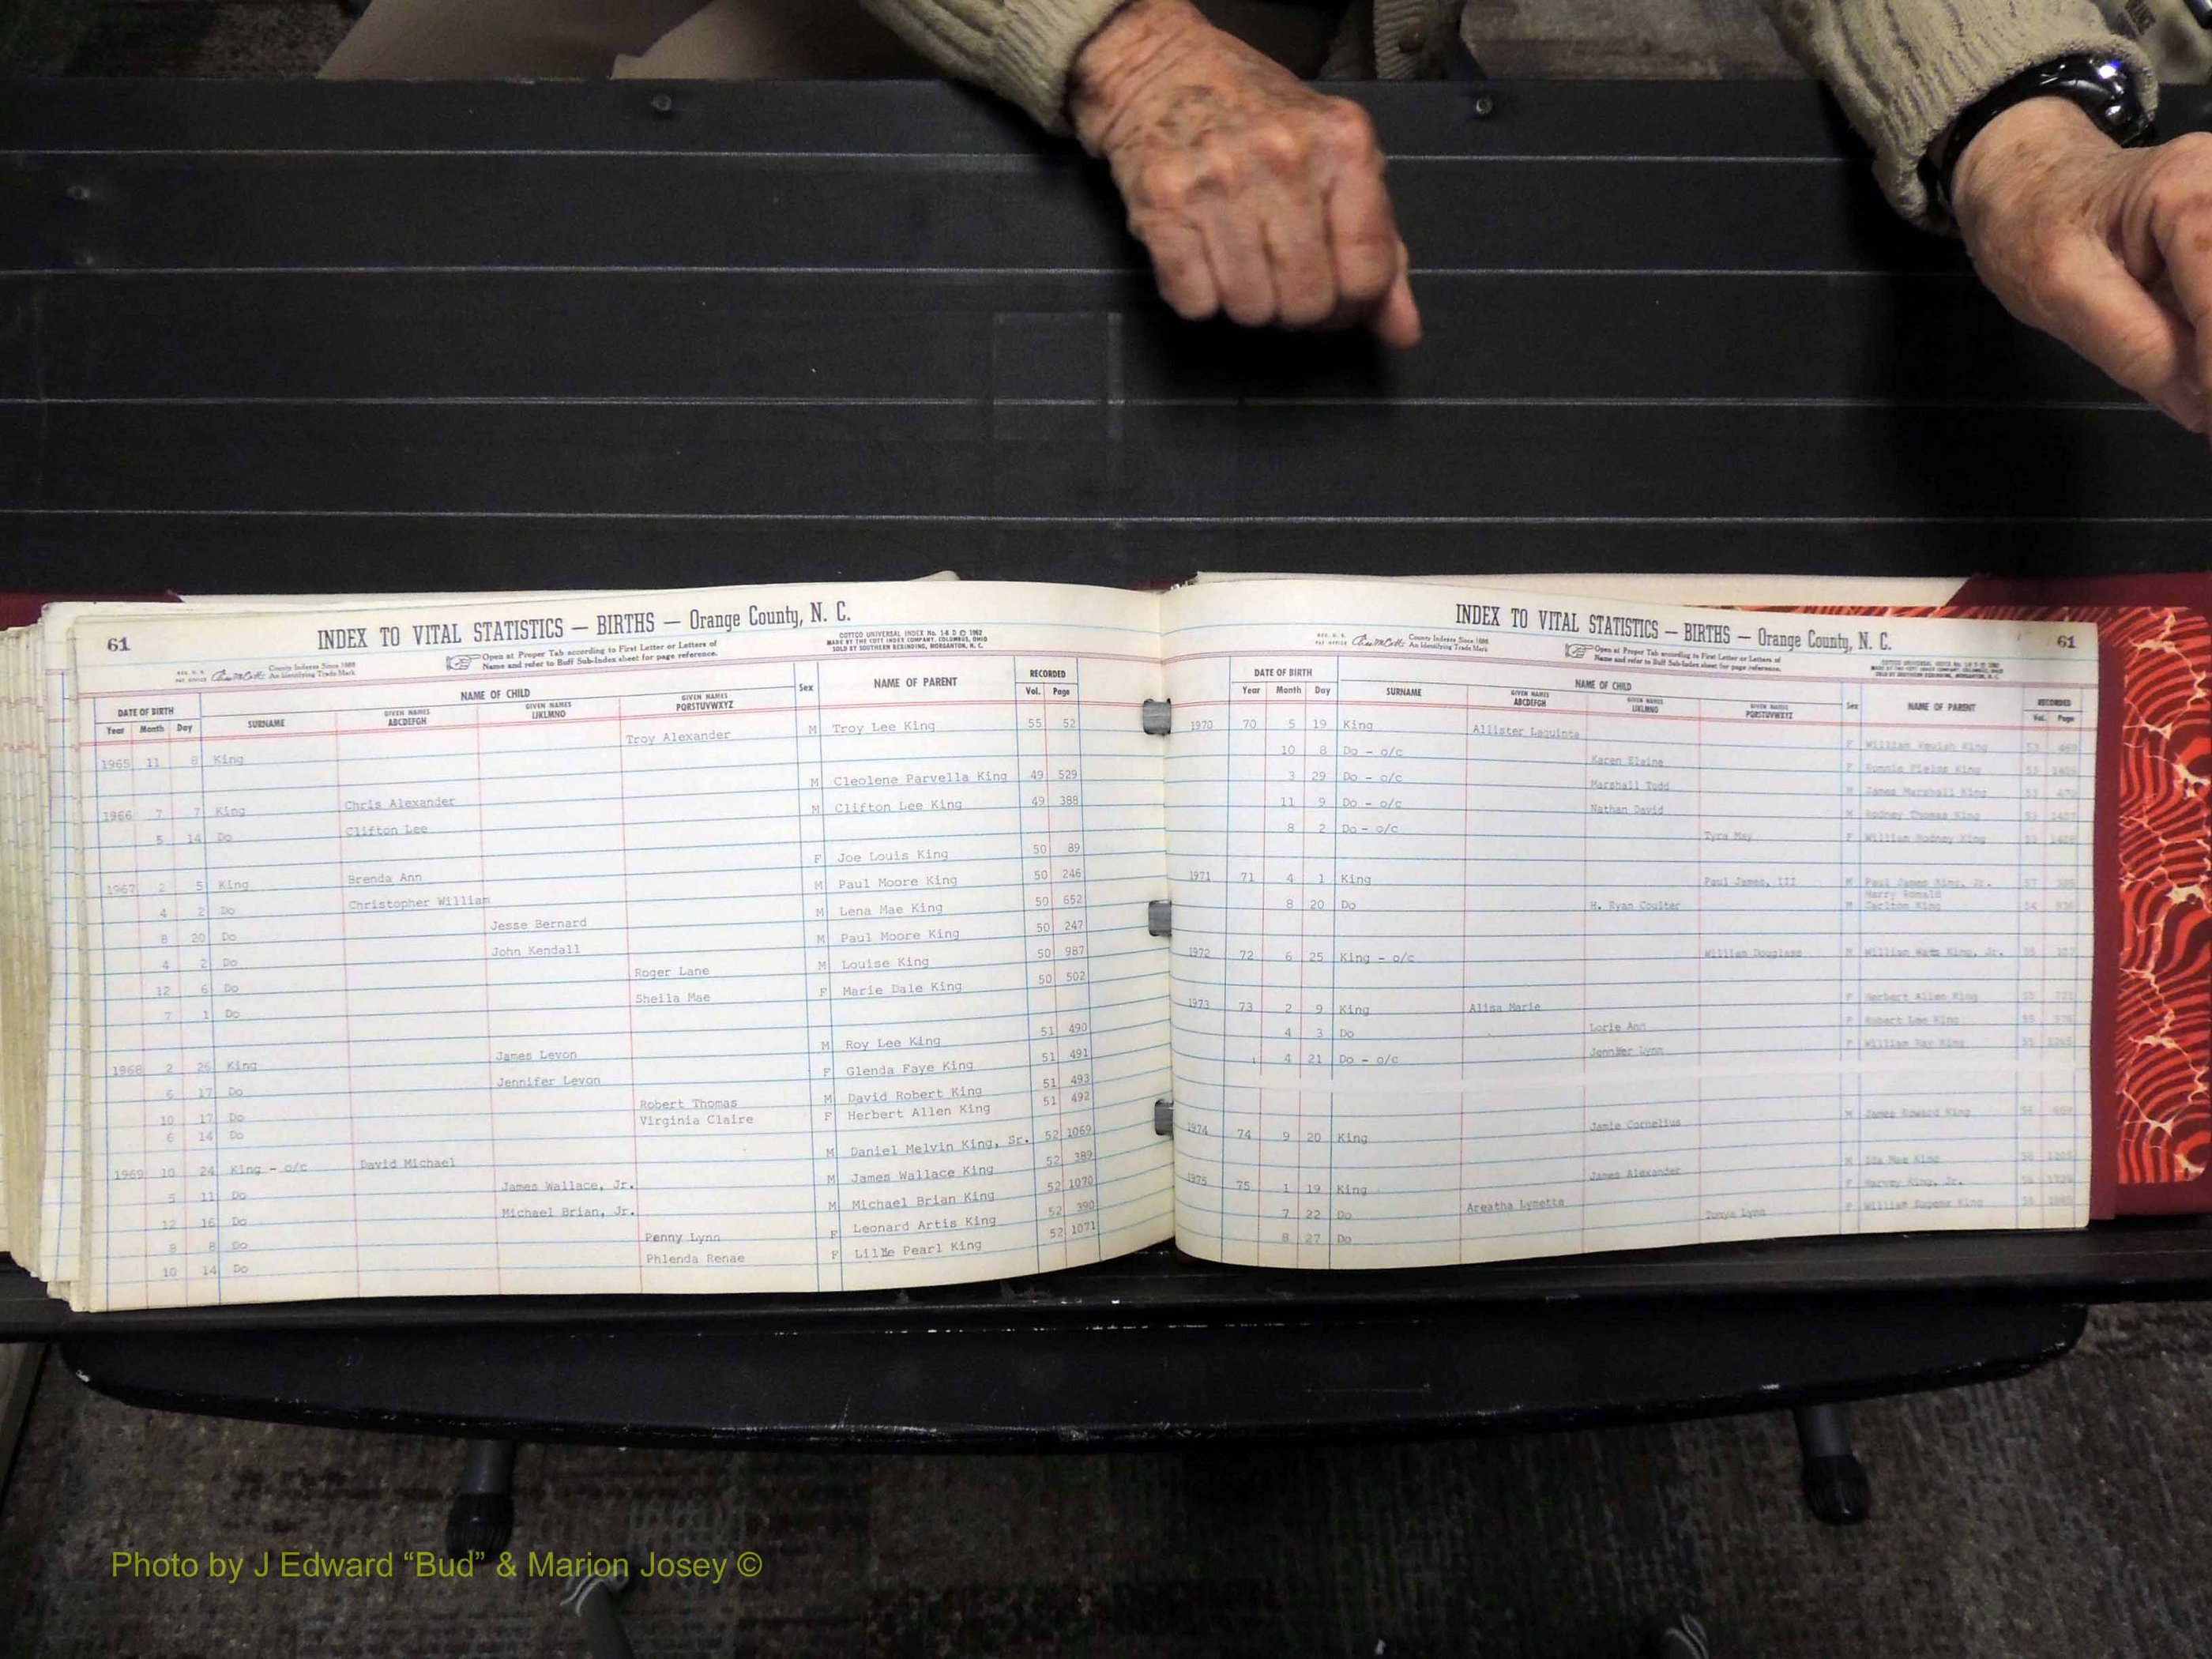 61
INDEX TO VITAL STATISTICS — BIRTHS — Orange County, N. C.
REG. U. S. PAT OFFICE County Indexes Since 1888 An Identifying Trade Mark
Open at Proper Tab according to First Letter or Letters of
Name and refer to Buff Sub-Index sheet for page reference.
COTTCO UNIVERSAL INDEX No. 1-8 D © 1962
MADE BY THE COTT INDEX COMPANY, COLUMBUS, OHIO
SOLD BY SOUTHERN REBINDING, MORGANTON, N. C.
DATE OF BIRTH NAME OF CHILD Sex NAME OF PARENT RECORDED
Year Month Day SURNAME GIVEN NAMES ABCDEFGH GIVEN NAMES IJKLMNO GIVEN NAMES PQRSTUVWXYZ Vol. Page
1965 11 8 King Troy Alexander M Troy Lee King 55 52
1966 7 7 King Chris Alexander M Cleolene Parvella King 49 529
5 14 Do Clifton Lee M Clifton Lee King 49 388
1967 2 5 King Brenda Ann F Joe Louis King 50 89
4 2 Do Christopher William M Paul Moore King 50 246
8 20 Do Jesse Bernard M Lena Mae King 50 652
4 2 Do John Kendall M Paul Moore King 50 247
12 6 Do Roger Lane M Louise King 50 987
7 1 Do Sheila Mae F Marie Dale King 50 502
1968 2 26 King James Levon M Roy Lee King 51 490
6 17 Do Jennifer Levon F Glenda Faye King 51 491
10 17 Do Robert Thomas M David Robert King 51 493
6 14 Do Virginia Claire F Herbert Allen King 51 492
1969 10 24 King - o/c David Michael M Daniel Melvin King, Sr. 52 1069
5 11 Do James Wallace, Jr. M James Wallace King 52 389
12 16 Do Michael Brian, Jr. M Michael Brian King 52 1070
8 Do Penny Lynn F Leonard Artis King 52 390
10 14 Do Phlenda Renae F Pearl King 52 1071
61
INDEX TO VITAL STATISTICS — BIRTHS — Orange County, N. C.
REG. U. S. PAT OFFICE County Indexes Since 1888 An Identifying Trade Mark
Open at Proper Tab according to First Letter or Letters of
Name and refer to Buff Sub-Index sheet for page reference.
DATE OF BIRTH NAME OF CHILD Sex NAME OF PARENT RECORDED
Year Month Day SURNAME GIVEN NAMES ABCDEFGH GIVEN NAMES IJKLMNO GIVEN NAMES PQRSTUVWXYZ Vol. Page
1970 70 5 19 King Allister Laquinta F William King 53 469
10 8 Do - o/c Karen Elaine F Ronnie Fields King 53
3 29 Do - o/c Marshall Todd M James Marshall King 53 470
11 9 Do - o/c Nathan David M Rodney Thomas King 53 1407
8 2 Do - o/c Tyra May F William Rodney King 53
1971 71 4 1 King Paul James, III M Paul James King, Jr. 57
8 20 Do H. Ryan Coulter M Harry Ronald Carlton King 54
1972 72 6 25 King - o/c William Douglass M William Watt King, Jr. 55
1973 73 2 9 King Alisa Marie F Herbert Allen King 55
4 3 Do Lorie Ann F Robert Lee King 55
4 21 Do - o/c Jennifer Lynn F William Ray King 55
1974 74 9 20 King Jamie Cornelius M James Edward King 56
1975 75 1 19 King James Alexander M Ida Mae King 56
7 22 Do Areatha Lynette F Harvey King, Jr. 56
8 27 Do Tonya Lynn F William Eugene King 56
Photo by J Edward “Bud” & Marion Josey ©